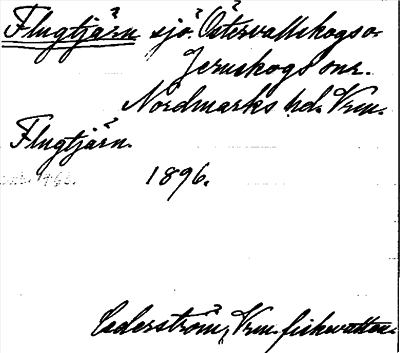 Flugtjärn sjö. Östervallskogs o
Jernskogs snr.
Nordmarks hd. Vrm.
Flugtjärn.
1896.
Cederström, Vrm. fiskevatten.